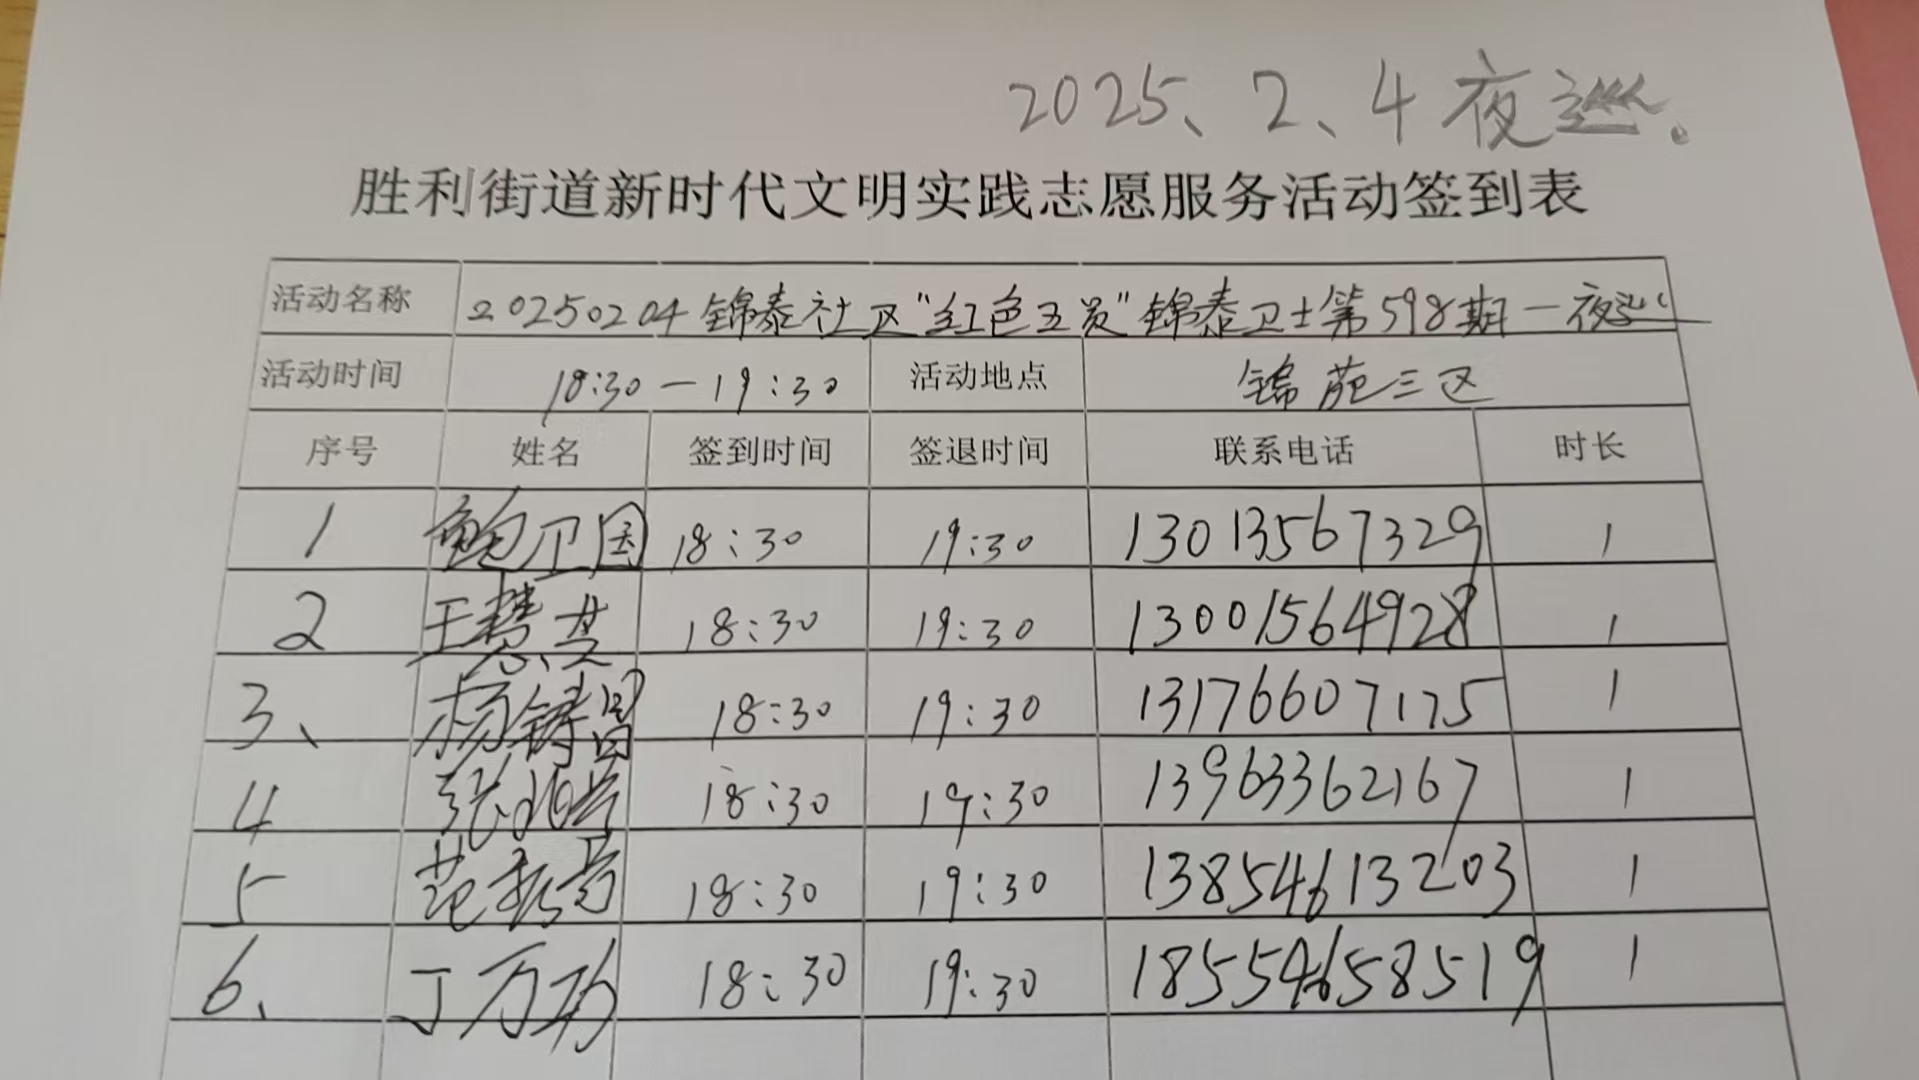 2025、2、4夜巡。
胜利街道新时代文明实践志愿服务活动签到表
活动名称 20250204锦泰社区"红色五员"锦泰卫士第598期一夜巡
活动时间 18:30—19:30 活动地点 锦苑三区
序号 姓名 签到时间 签退时间 联系电话 时长
1 鲍卫国 18:30 19:30 13013567329 1
2 王慧芝 18:30 19:30 13001564928 1
3、 杨铸昌 18:30 19:30 13176607175 1
4 张兆兴 18:30 19:30 13963362167 1
5 范振亮 18:30 19:30 13854613203 1
6、 丁万功 18:30 19:30 18554658519 1